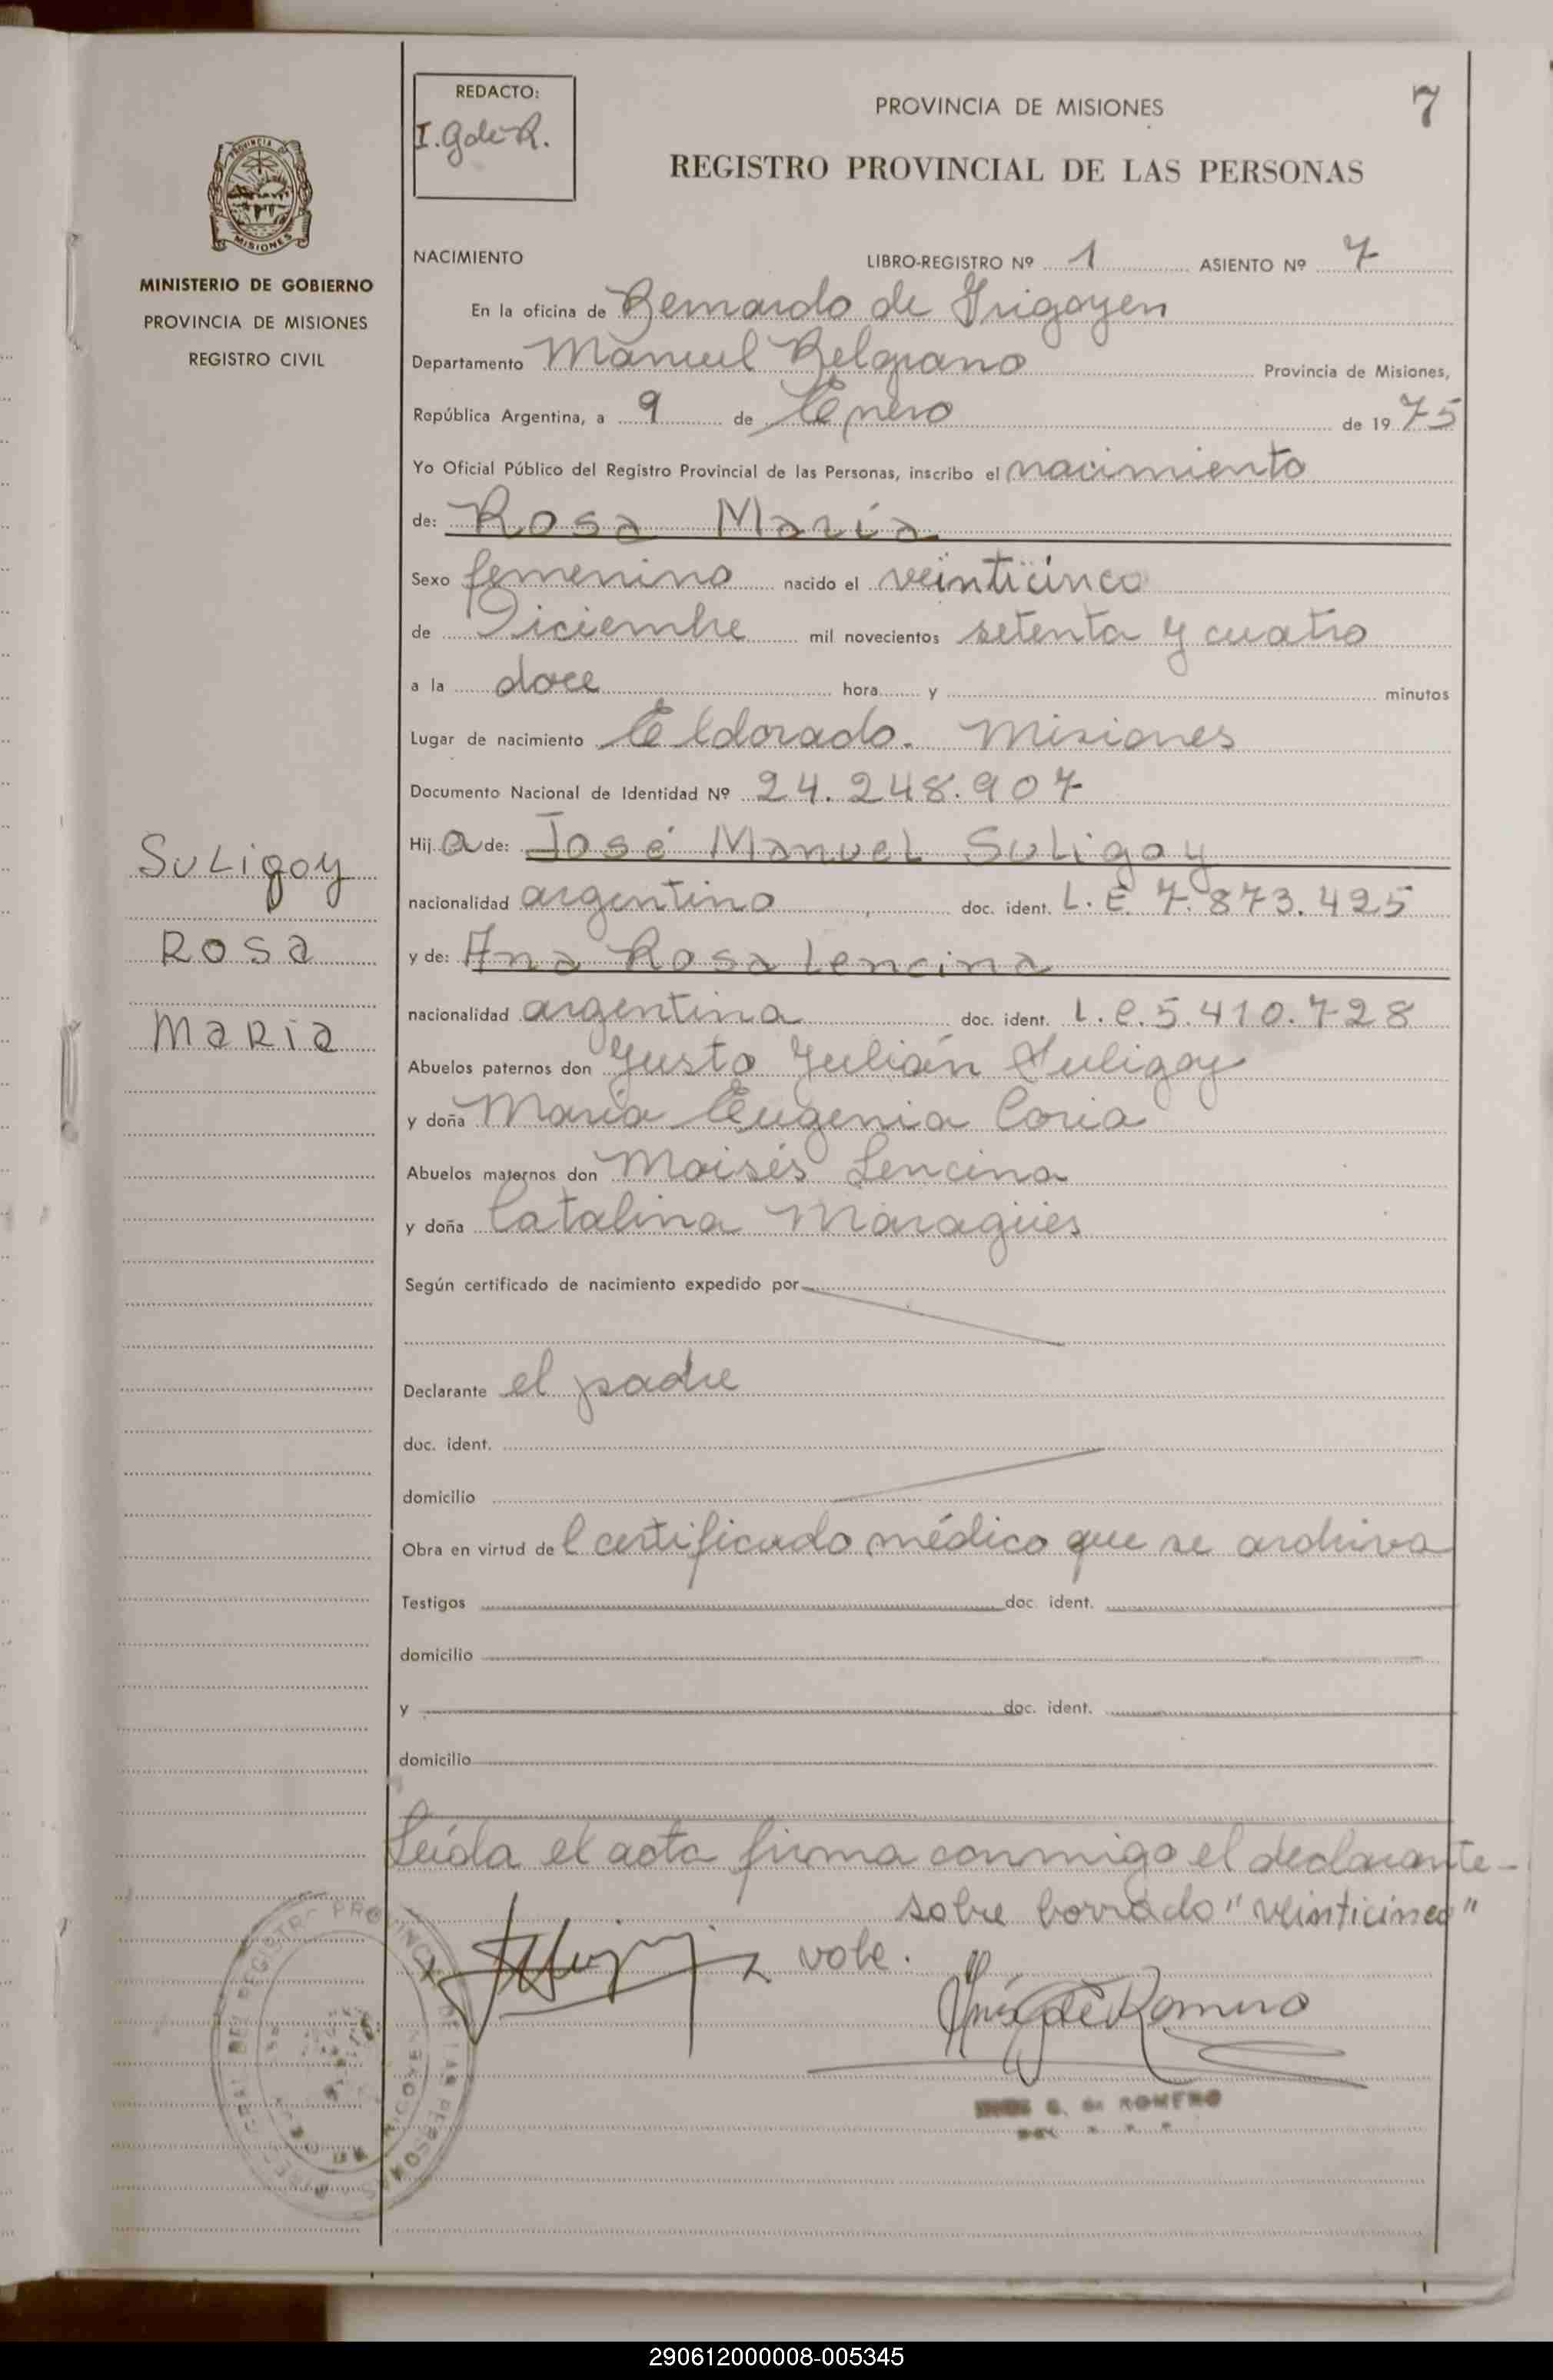 REDACTO:
I. G de R.
PROVINCIA DE MISIONES
7
REGISTRO PROVINCIAL DE LAS PERSONAS
PROVINCIA DE
MISIONES
MINISTERIO DE GOBIERNO
PROVINCIA DE MISIONES
REGISTRO CIVIL
NACIMIENTO LIBRO-REGISTRO Nº 1 ASIENTO Nº 7
En la oficina de Bernardo de Irigoyen
Departamento Manuel Belgrano Provincia de Misiones,
República Argentina, a 9 de Enero de 1975
Yo Oficial Público del Registro Provincial de las Personas, inscribo el nacimiento
de: Rosa María
Sexo femenino nacido el veinticinco
de Diciembre mil novecientos setenta y cuatro
a la doce hora y minutos
Lugar de nacimiento Eldorado. Misiones
Documento Nacional de Identidad Nº 24.248.907
Hija de: José Manuel Suligoy
nacionalidad argentino doc. ident. L.E. 7.873.425
y de: Ana Rosa Lencina
nacionalidad argentina doc. ident. L.C. 5.410.728
Abuelos paternos don Justo Julián Suligoy
y doña María Eugenia Coria
Abuelos maternos don Moisés Lencina
y doña Catalina Maragües
Según certificado de nacimiento expedido por
Declarante el padre
doc. ident.
domicilio
Obra en virtud del certificado médico que se archiva
Testigos doc. ident.
domicilio
y doc. ident.
domicilio
Leída el acta firma conmigo el declarante-
sobre borrado "veinticinco"
vale.
Inés G de Romero
G. de ROMERO
SULigoy
Rosa
Maria
REGISTRO PROVINCIAL DE LAS PERSONAS
290612000008-005345